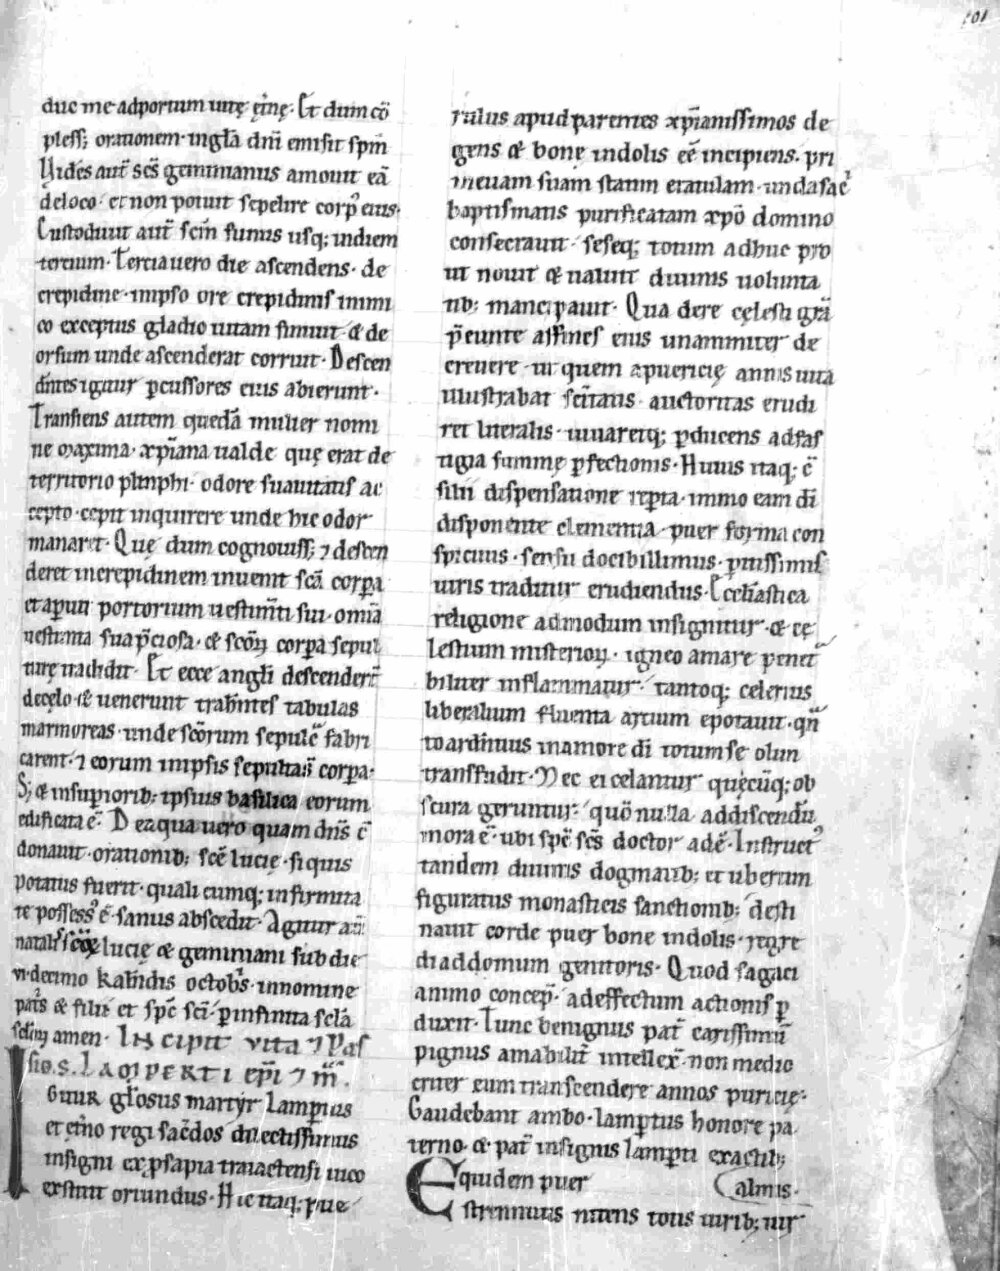 101
duc me ad portum uitę ęt̄nę. Et dum cō
pless; orationem. in gl̄a dn̄i emisit sp̄m
Vidēs aut̄ sc̄s geminianus amouit eā
de loco. et non potuit sepelire corpꝰ eius.
Custodiuit aut̄ sc̄m funus usq; in diem
tertium. Tercia uero die ascendens. de
crepidine. in ipso ore crepidinis inimi
co exceptus gladio uitam finiuit. & de
orsum unde ascenderat corruit. Descen
dn̄tes igitur ꝑcussores eius abierunt.
Transiens autem quedā mulier nomi
ne maxima. xp̄iana ualde quę erat de
territorio plinphi. odore suauitatis ac
cepto. cepit inquirere unde hic odor
manaret. Quę dum cognouiss; ⁊ descen
deret in crepidinem inuenit sc̄a corꝑa
et aꝑuit portorium uestim̄ti sui. omīa
uestimta sua p̄ciosa. & sc̄oꝝ corꝑa sepul
turę tradidit. Et ecce angl̄i descender̄t
de cęlo & uenerunt trahn̄tes tabulas
marmoreas. unde sc̄orum sepulc̄ fabri
carent. ⁊ eorum in ipsis sepulta s̄ corꝑa.
S; & in suꝑiorib; ipsius basilica eorum
edificata ē. De aqua uero quam dn̄s ē
donauit. orationib; sc̄e lucię. si quis
potatus fuerit. quali cumq; infirmita
te possessꝰ ē. sanus abscedit. Agitur aū
natalis sc̄oꝝ lucię & geminiani sub die
vi decimo kalendis octobr̄s. in nomine
patꝰs & filii et sp̄c sc̄i. ꝑ infinita sc̄la
sc̄loꝝ amen. Incipit vita ⁊ pas
sio. S. Lamperti ep̄i ⁊ m̄r.
Igitur glōsus martyr lamꝑtus
et ęt̄no regi sac̄dos dilectissimus
insigni ex ꝓsapia traiactensi uico
extitit oriundus. Hic itaq; pue
rulus apud parentes xp̄ianissimos de
gens & bonę indolis eē incipiens. pri
meuam suam statim etatulam. unda sac̄
baptismatis purificatam xp̄o domino
consecrauit. seseq; totum adhuc pro
ut nouit & ualuit diuinis uolunta
tib; mancipauit. Qua de re cęlesti gr̄a
p̄eunte affines eius unanimiter de
creuere. ut quem a puericię annis uita
illustrabat sc̄itatis. auctoritas erudi
ret litteralis. iuuaretq; ꝓducens ad fas
tigia summę ꝑfectionis. Huius itaq; ē
filii dispensatione reꝑta. immo eam dī
disponente clementia. puer forma con
spicuus. sensu docibillimus. piissimis
uiris traditur erudiendus. Ecclīastica
religione admodum insignitur. & cę
lestium misterioꝝ. igneo amare penet̄
biliter inflammatur. tantoq; celerius
liberalium fluenta artium epotauit. qn̄
to ardentius in amore dī totum se olim
transfudit. Nec ei celantur quęcūq; ob
scura geruntur. quō nulla addiscendū
mora ē. ubi sp̄c sc̄s doctor adē. Instructꝰ
tandem diuinis dogmatib; et uberum
figuratus monasticis sanctionib; desti
nauit corde puer bone indolis. regre
di ad domum genitoris. Quod sagaci
animo concep̄. ad effectum actionis ꝑ
duxit. Tunc benignus pat̄ carissimū
pignus amabilit̄ intellex̄. non medio
criter eum transcendere annos puricię.
Gaudebant ambo. lamꝑtus honore pa
terno. & pat̄ insignis lamꝑti exactib;
Equidem puer almis.
strennuis nitens totis uirib; uir